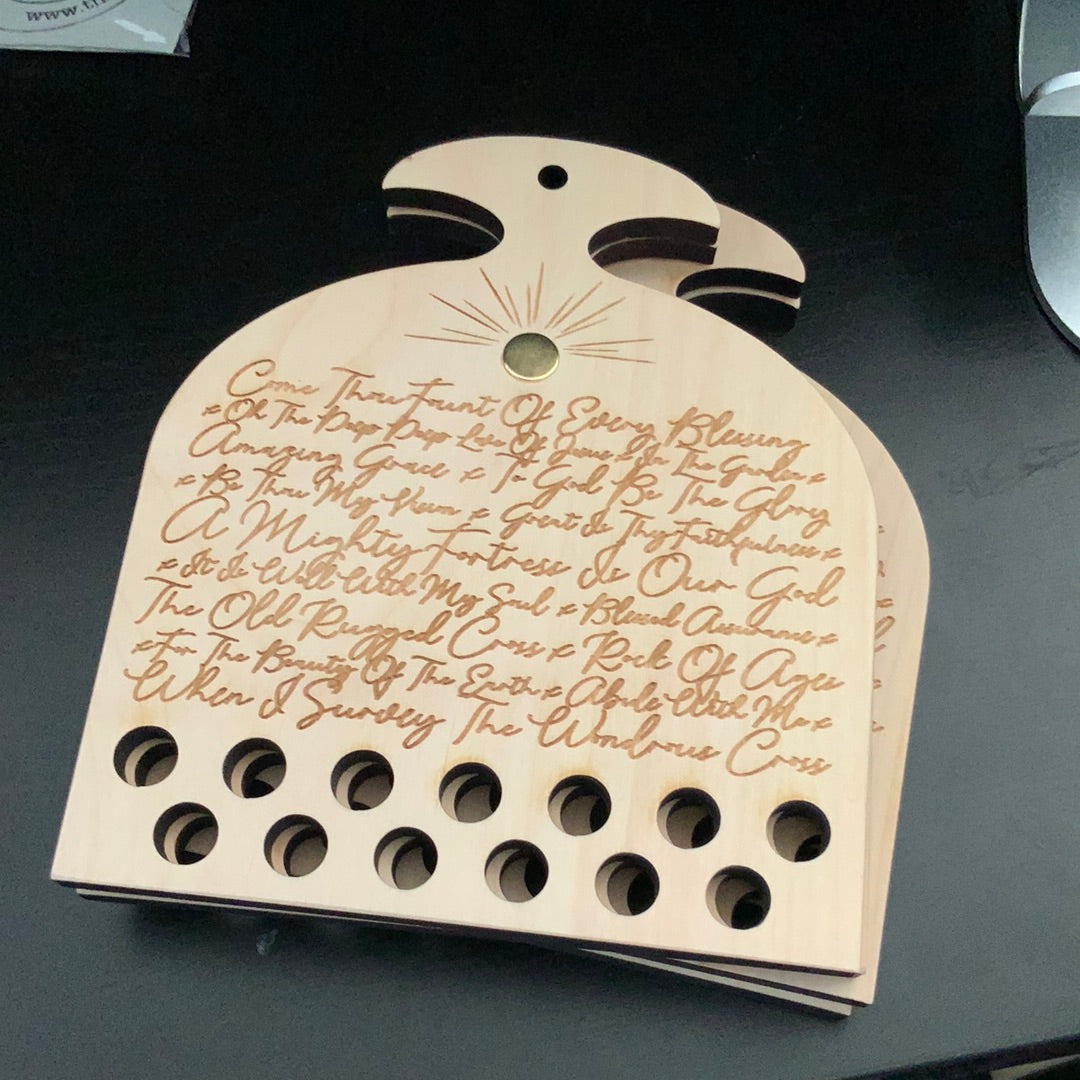 www.t
Come Thou Fount Of Every Blessing
x Oh The Deep Deep Love Of Jesus x In The Garden x
Amazing Grace x To God Be The Glory
x Be Thou My Vision x Great Is Thy Faithfulness x
A Mighty Fortress Is Our God
x It Is Well With My Soul x Blessed Assurance x
The Old Rugged Cross x Rock Of Ages
x For The Beauty Of The Earth x Abide With Me x
When I Survey The Wondrous Cross